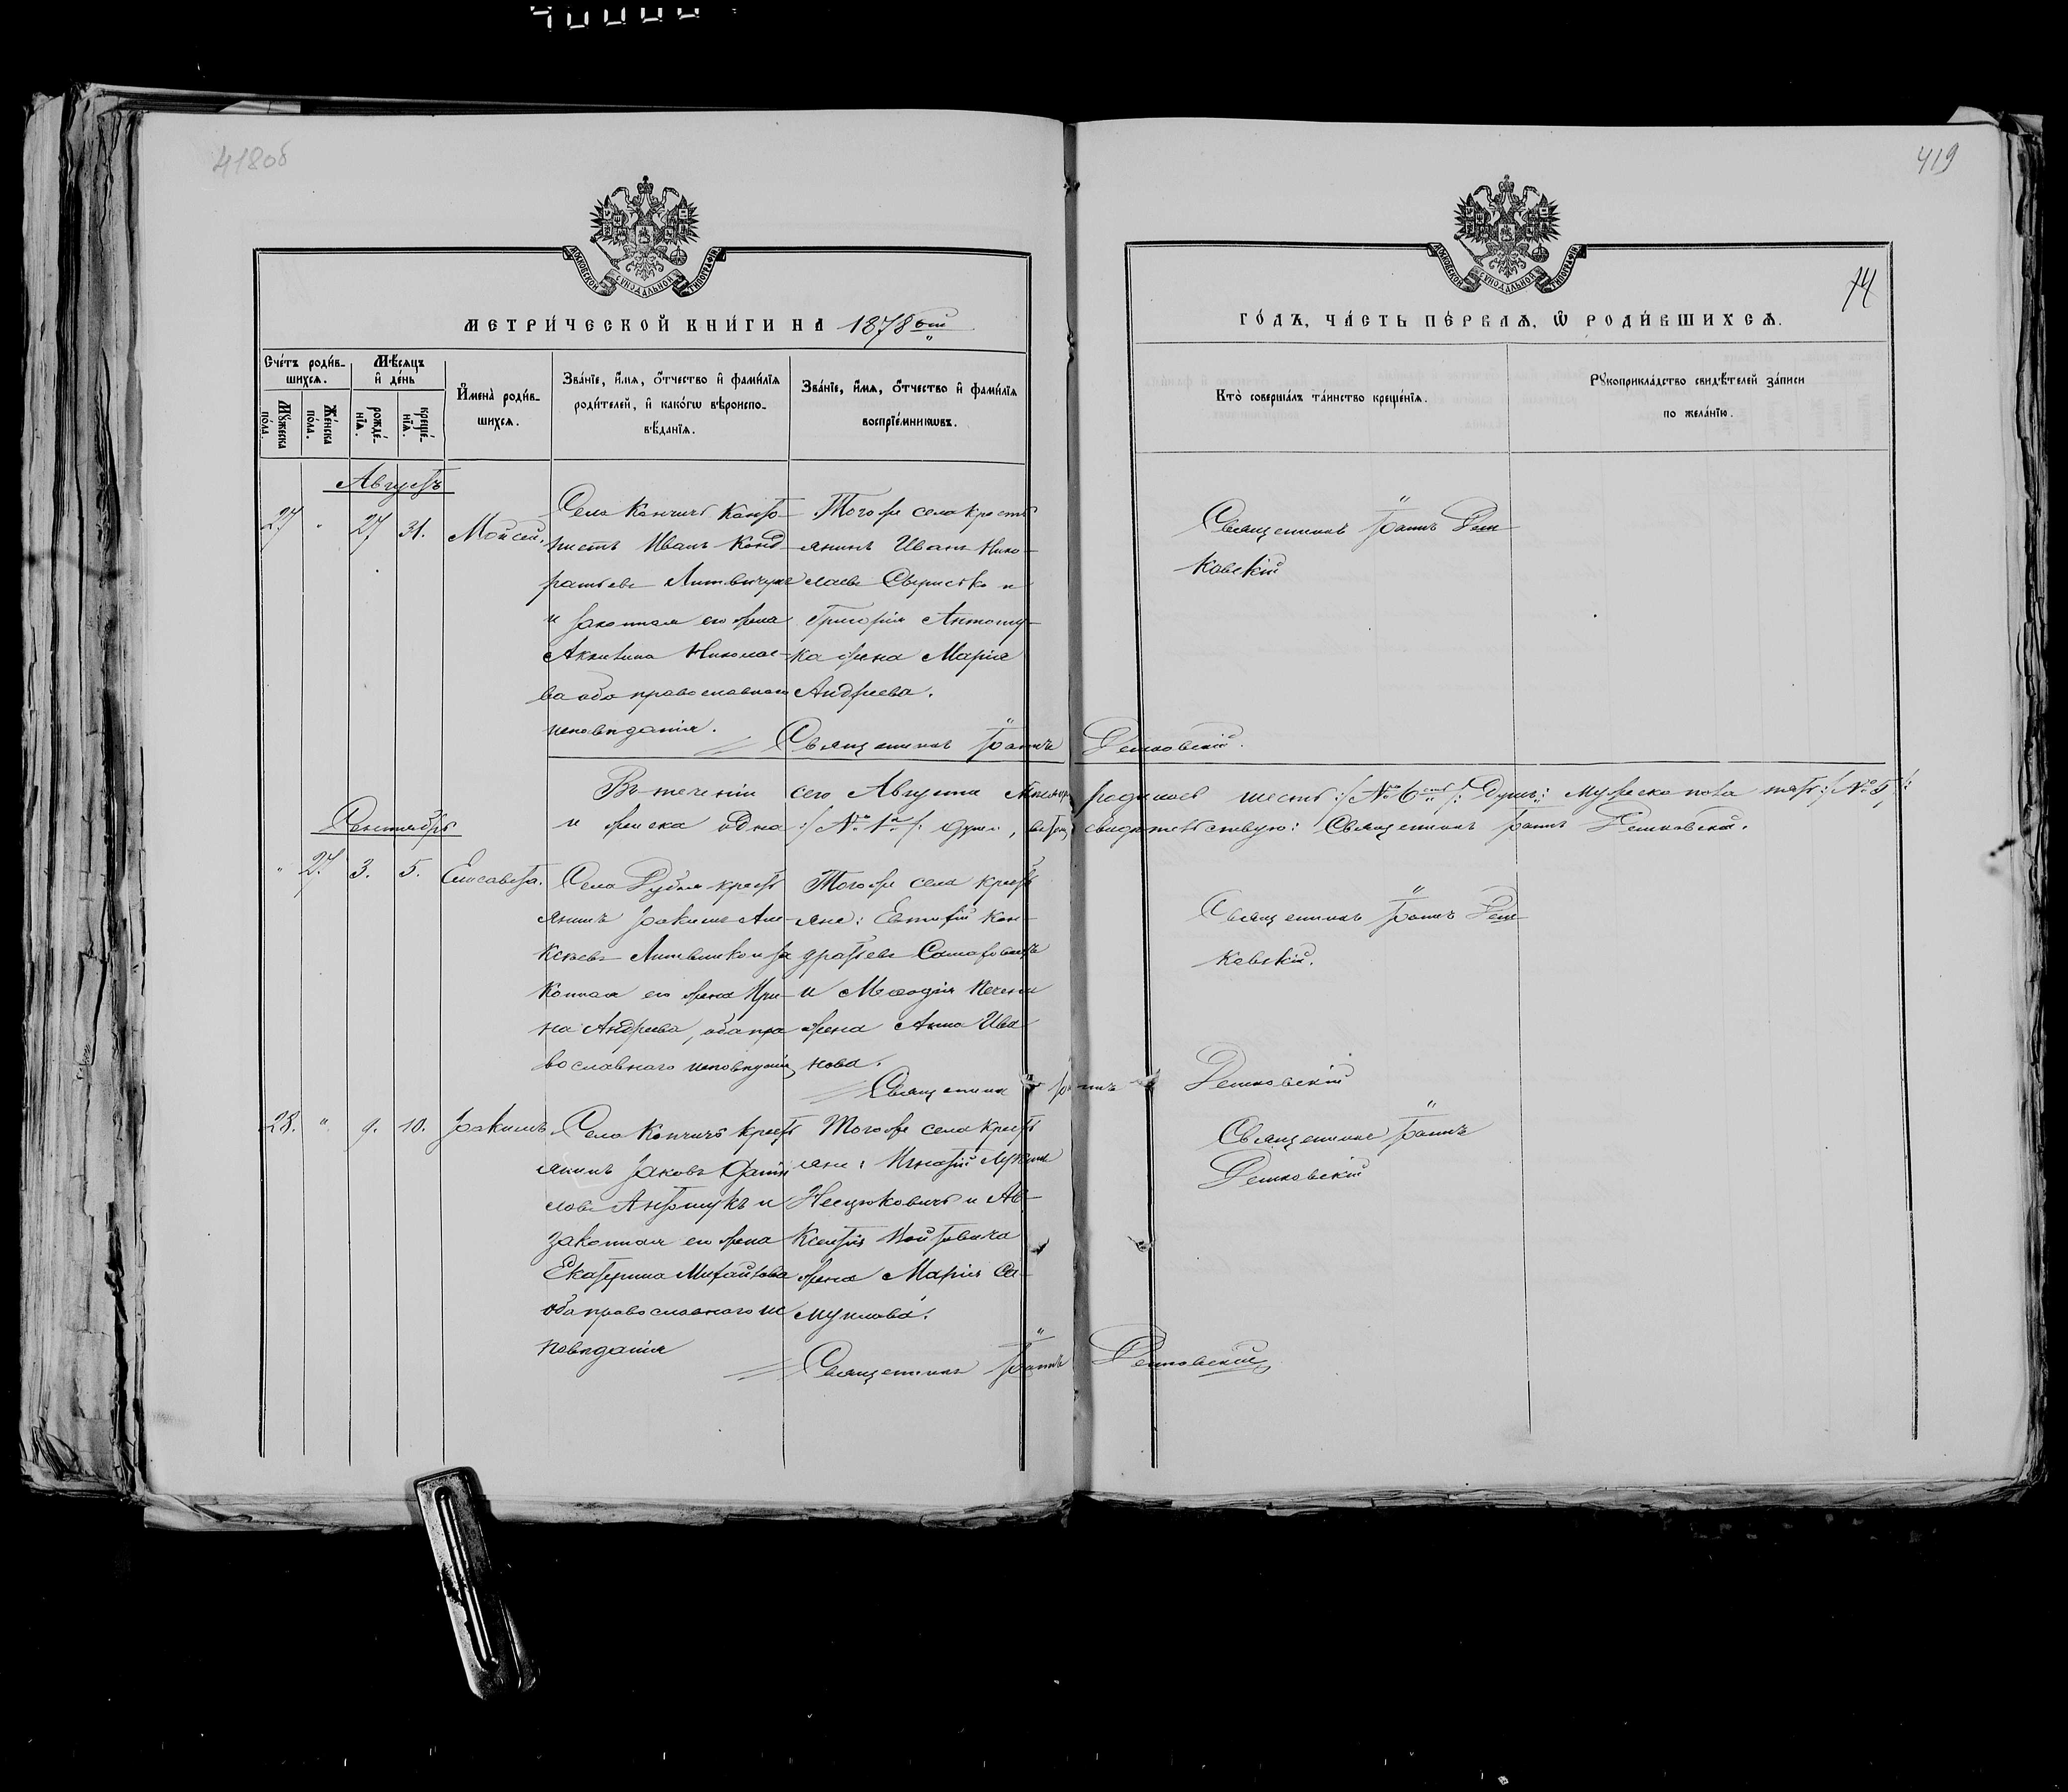 418об
419
74
МЕТРИ́ЧЕСКОЙ КНИ́ГИ НА 1878ой
ГО́ДЪ, ЧА́СТЬ ПЕ́РВАѦ, Ѡ҆ РОДИ́ВШИХСѦ.
Сче́тъ роди́в-
шихсѧ.
Мꙋ́жеска
по́ла.
Же́нска
по́ла.
Мѣ́сѧцъ
и҆ де́нь
рожде́-
нїѧ.
креще́-
нїѧ.
И҆мена̀ роди́в-
шихсѧ.
Зва́нїе, и҆́мѧ, ѻ҆́тчество и҆ фами́лїѧ
роди́телей, и҆ како́гѡ вѣ́роиспо-
вѣ́данїѧ.
Зва́нїе, и҆́мѧ, ѻ҆́тчество и҆ фами́лїѧ
воспрїе́мникѡвъ.
Кто̀ соверша́лъ та́инство креще́нїѧ.
Рꙋкоприкла́дство свидѣ́телей за́писи
по жела́нїю.
Августъ
27 " 27 31. Мойсей.
Села Кончичъ
Иванъ Конд-
ратьевъ Литвинчукъ
и законная его жена
Акилина Николае-
ва оба православнаго
исповѣданія.
Тогоже села кресть
янинъ Иванъ Нико-
лаевъ и
Григорія Антонщу-
ка жена Марія
Андреева.
Священникъ Іоаннъ Деш
ковскій
Священникъ Іоаннъ Дешковскій.
Въ теченіи сего Августа мѣсяца родилось шесть :/№ 6сть/: душъ: мужеска пола пять :/№ 5/:
и женска одна :/№ 1/: душа, въ чемъ свидѣтельствую: Священникъ Іоаннъ Дешковскій.
Сентябрь
" 27. 3. 5. Елисавета.
Села Дубоя кресть
янинъ Іоакимъ Але-
ксѣевъ и за
конная его жена Ири-
на Андреева, оба пра
вославнаго исповѣданія,
Тогоже села кресть
яне: Евтифій Кон-
дратьевъ
и Меѳодія
жена Анна Ива
нова.
Священникъ Іоаннъ Деш
ковскій.
Священникъ Іоаннъ Дешковскій
28. " 9. 10. Іоакимъ.
Села Кончичъ кресть
янинъ Іаковъ
Антощукъ и
законная его жена
Екатерина Михайлова
оба православнаго ис
повѣданія
Тогоже села кресть
яне: Игнатій
и Ав-
ксентія Войтовича
жена Марія Са-
муилова.
Священникъ Іоаннъ
Дешковскій
Священникъ Іоаннъ Дешковскій